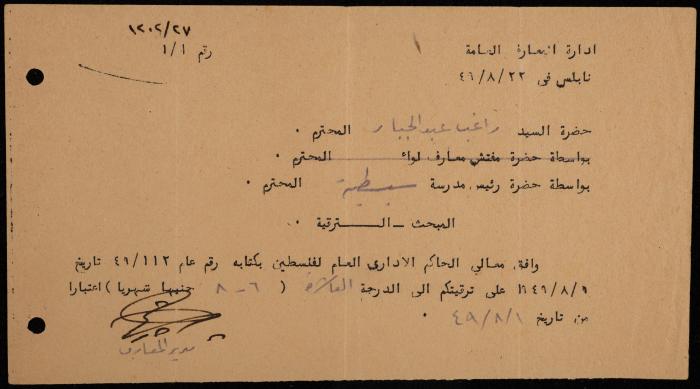 ١٢٠٢/٢٧
رقم ١/١
ادارة المعارف العامة
نابلس في ٤٩/٨/٢٢
حضرة السيد راغب عبد الجبار المحترم ٠
بواسطة حضرة مفتش معارف لواء المحترم ٠
بواسطة حضرة رئيس مدرسة سبسطية المحترم ٠
المبحث ـ الـــترقية ٠
وافق معالي الحاكم الادارى العام لفلسطين بكتابه رقم عام ٤٩/١١٢ تاريخ
٤٩/٨/٩ على ترقيتكم الى الدرجة العاشرة ( ٦-٨ جنيها شهريا ) اعتبارا
من تاريخ ٤٩/٨/١ ٠
مدير المعارف